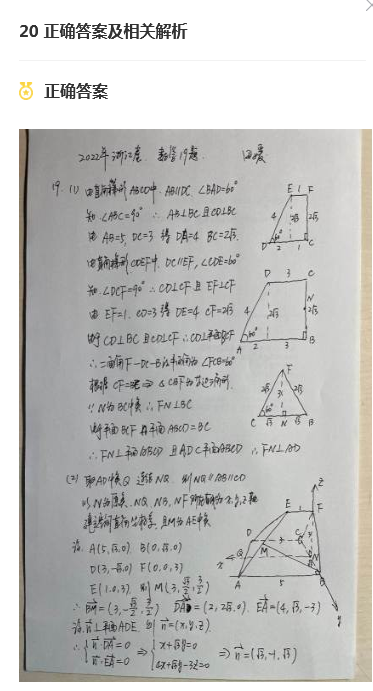 20 正确答案及相关解析
正确答案
2022年 浙江卷 数学19题
19. (1) 由直角梯形ABCD中, AB∥DC, ∠BAD=60°
知 ∠ABC=90° ∴ AB⊥BC 且CD⊥BC
由 AB=5, DC=3 得 DA=4 BC=2√3.
由直角梯形CDEF中, DC∥EF, ∠CDE=60°
知 ∠DCF=90° ∴CD⊥CF 且 EF⊥CF
由 EF=1. CD=3 得 DE=4 CF=2√3
由于 CD⊥BC 且 CD⊥CF ∴CD⊥平面BCF
∴二面角F-DC-B的平面角为∠FCB=60°
∵N为BC中点 ∴FN⊥BC
平面BCF∩平面ABCD=BC
∴FN⊥平面ABCD 且 AD⊂平面ABCD ∴FN⊥AD
(2) 取AD中点Q 连接NQ, 则 NQ∥AB∥CD
以N为原点, NQ, NB, NF所在直线为x,y,z轴
建立空间直角坐标系, 且M为AE中点
设 A(5,√3,0) B(0,√3,0)
D(3,-√3,0) F(0,0,3)
E(1,0,3), 则 M(3,√3/2,3/2)
∴ BM=(3,-√3/2,3/2) DA=(2,2√3,0), EA=(4,√3,-3)
设 n⊥平面ADE, 则 n=(x,y,z)
∴ n·DA=0 ⇒ x+√3y=0 ⇒ n=(√3,-1,√3)
n·EA=0 4x+√3y-3z=0